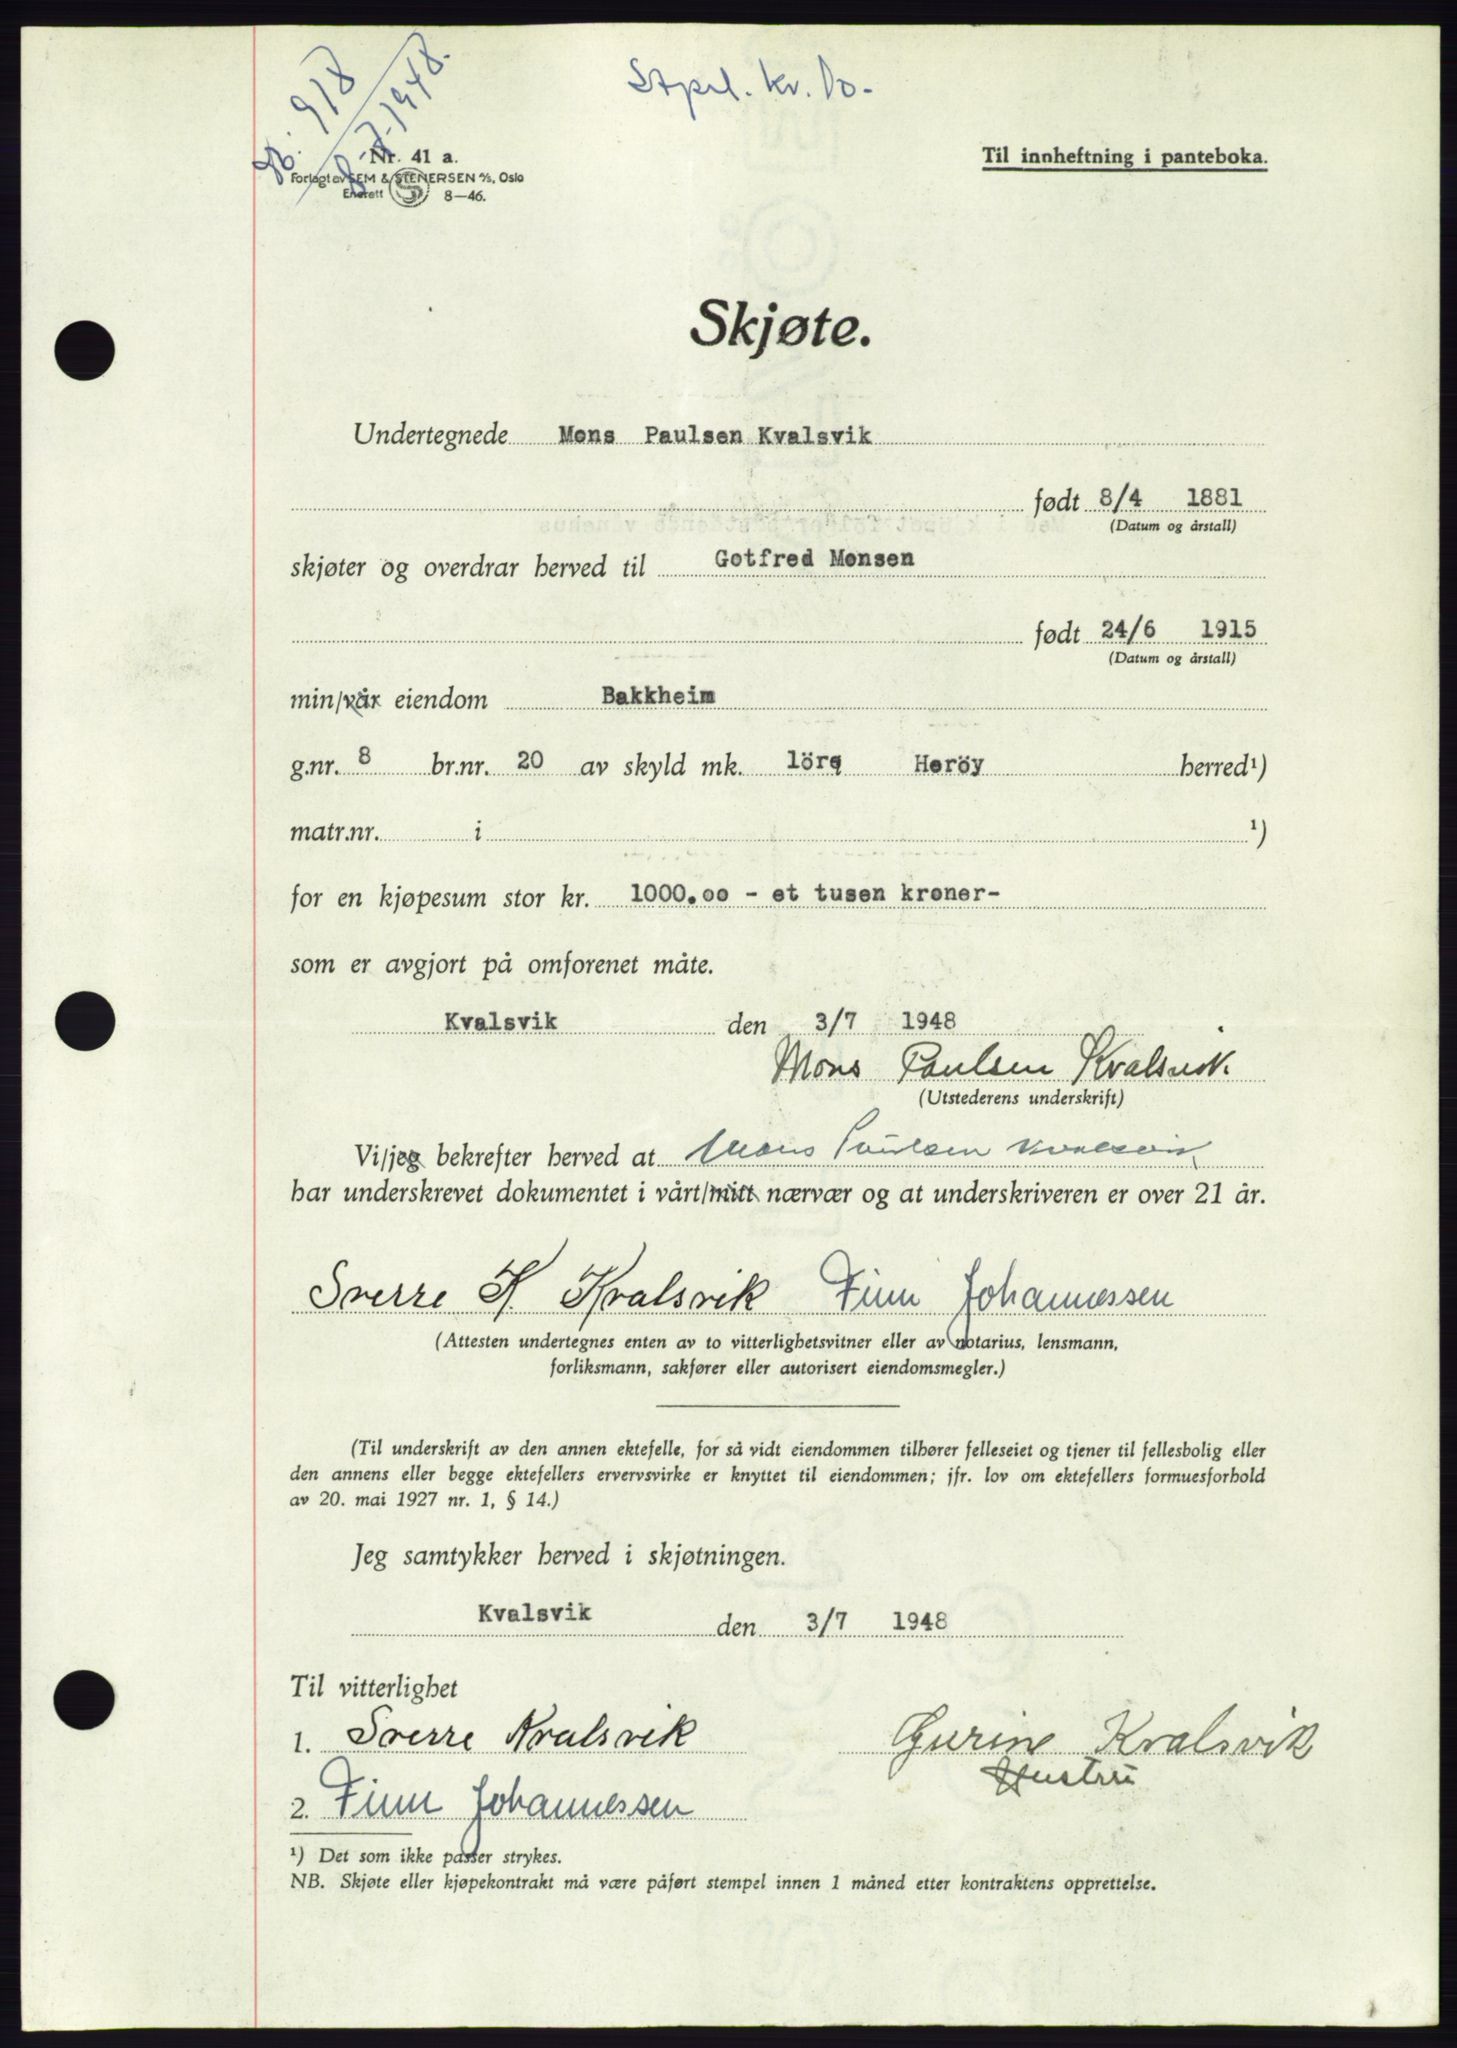 918
8-7-1948.
Stpl. kr. 10.-
Nr. 41 a.
Forlagt av SEM & STENERSEN A/S, Oslo
Enerett S 8—46.
Til innheftning i panteboka.
Skjøte.
Undertegnede Mons Paulsen Kvalsvik
født 8/4 1881
(Datum og årstall)
skjøter og overdrar herved til Gotfred Monsen
født 24/6 1915
(Datum og årstall)
min/vår eiendom Bakkheim
g.nr. 8 br.nr. 20 av skyld mk. 1öre Heröy herred¹)
matr.nr. i ¹)
for en kjøpesum stor kr. 1000.oo - et tusen kroner-
som er avgjort på omforenet måte.
Kvalsvik den 3/7 1948
Mons Paulsen Kvalsvik
(Utstederens underskrift)
Vi/jeg bekrefter herved at Mons Paulsen Kvalsvik
har underskrevet dokumentet i vårt/mitt nærvær og at underskriveren er over 21 år.
Sverre K. Kvalsvik Finn Johannessen
(Attesten undertegnes enten av to vitterlighetsvitner eller av notarius, lensmann,
forliksmann, sakfører eller autorisert eiendomsmegler.)
(Til underskrift av den annen ektefelle, for så vidt eiendommen tilhører felleseiet og tjener til fellesbolig eller
den annens eller begge ektefellers ervervsvirke er knyttet til eiendommen; jfr. lov om ektefellers formuesforhold
av 20. mai 1927 nr. 1, § 14.)
Jeg samtykker herved i skjøtningen.
Kvalsvik den 3/7 1948
Til vitterlighet
1. Sverre Kvalsvik Gurine Kvalsvik
Hustru
2. Finn Johannessen
¹) Det som ikke passer strykes.
NB. Skjøte eller kjøpekontrakt må være påført stempel innen 1 måned etter kontraktens opprettelse.